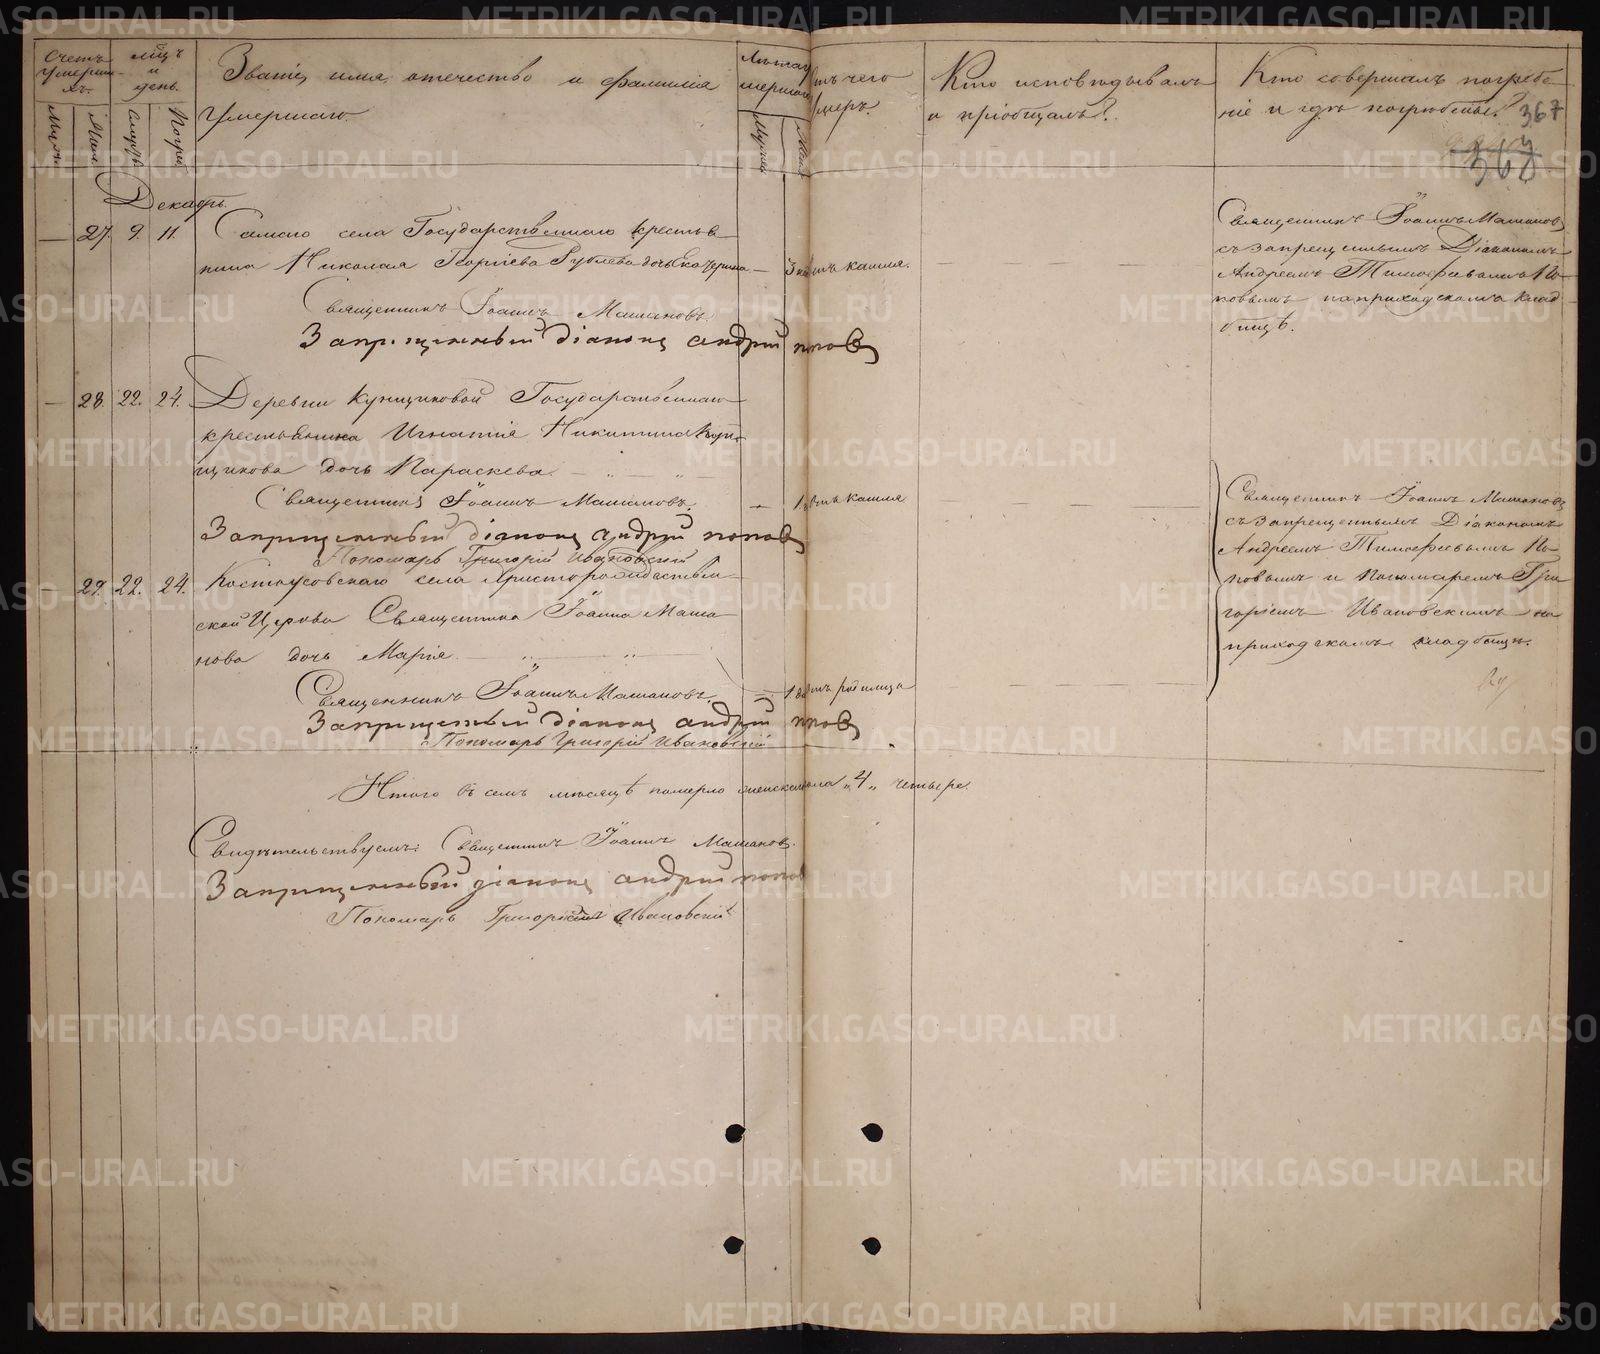 Счетъ умершихъ.
Муж.
Жен.
Мѣсяцъ и день.
Смерть
Погре
Званіе, имя, отечество и фамилія
умершаго
Мужеск
Женск
отъ чего
умеръ.
Кто исповѣдывалъ
и пріобщалъ?
Кто совершалъ погребе-
ніе и гдѣ погребены?
367
368
Декабрь.
— 27. 9. 11. Самаго села Государственнаго крестья-
нина Николая Георгіева дочь Екатерина — 3 отъ кашля.
Священникъ Іоаннъ Машановъ.
Запрещенный діаконъ андрей попов
Священникъ Іоаннъ Машановъ
съ запрещеннымъ Діакономъ
Андреемъ Тимофеевымъ По-
повымъ на приходскомъ клад-
бищѣ.
— 28. 22. 24. Деревни Кунщиковой Государственнаго
крестьянина Игнатія Никитина
щикова дочь Параскева
Священникъ Іоаннъ Машановъ. — 1 отъ кашля
Запрещенный діаконъ андрей попов
Пономарь Григорій Ивановскій
Священникъ Іоаннъ Машановъ
съ запрещеннымъ Діакономъ
Андреемъ Тимофеевымъ По-
повымъ и Пономаремъ Гри-
горіемъ Ивановскимъ на
приходскомъ кладбищѣ.
— 29. 22. 24. Костоусовскаго села Христорождественн-
ской Церкви Священника Іоанна Маша-
нова дочь Марія
Священникъ Іоаннъ Машановъ. — 1 отъ родимца
Запрещенный діаконъ андрей попов
Пономарь Григорій Ивановскій
Итого въ семъ мѣсяцѣ померло женска пола „4„ четыре.
Свидѣтельствуемъ: Священникъ Іоаннъ Машановъ.
Запрещенный діаконъ андрей попов
Пономарь Григорій Ивановскій
METRIKI.GASO-URAL.RU